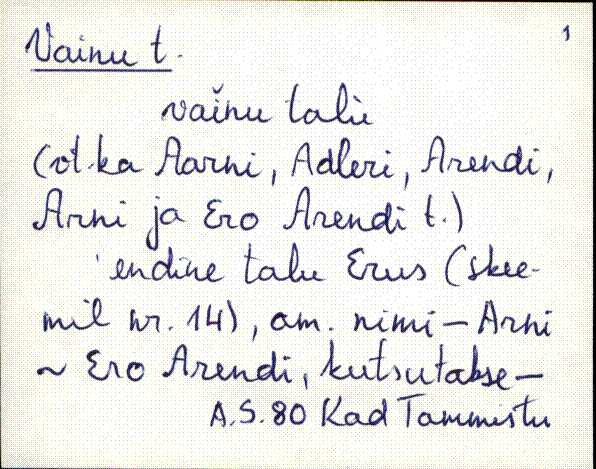 Vainu t. 1
vaĭnu talu
(vt. ka Aarni, Adleri, Arendi,
Arni ja Ero Arendi t.)
endine talu Erus (skee-
mil nr. 14), am. nimi – Arni
~ Ero Arendi, kutsutakse –
A.S. 80 Kad Tammistu